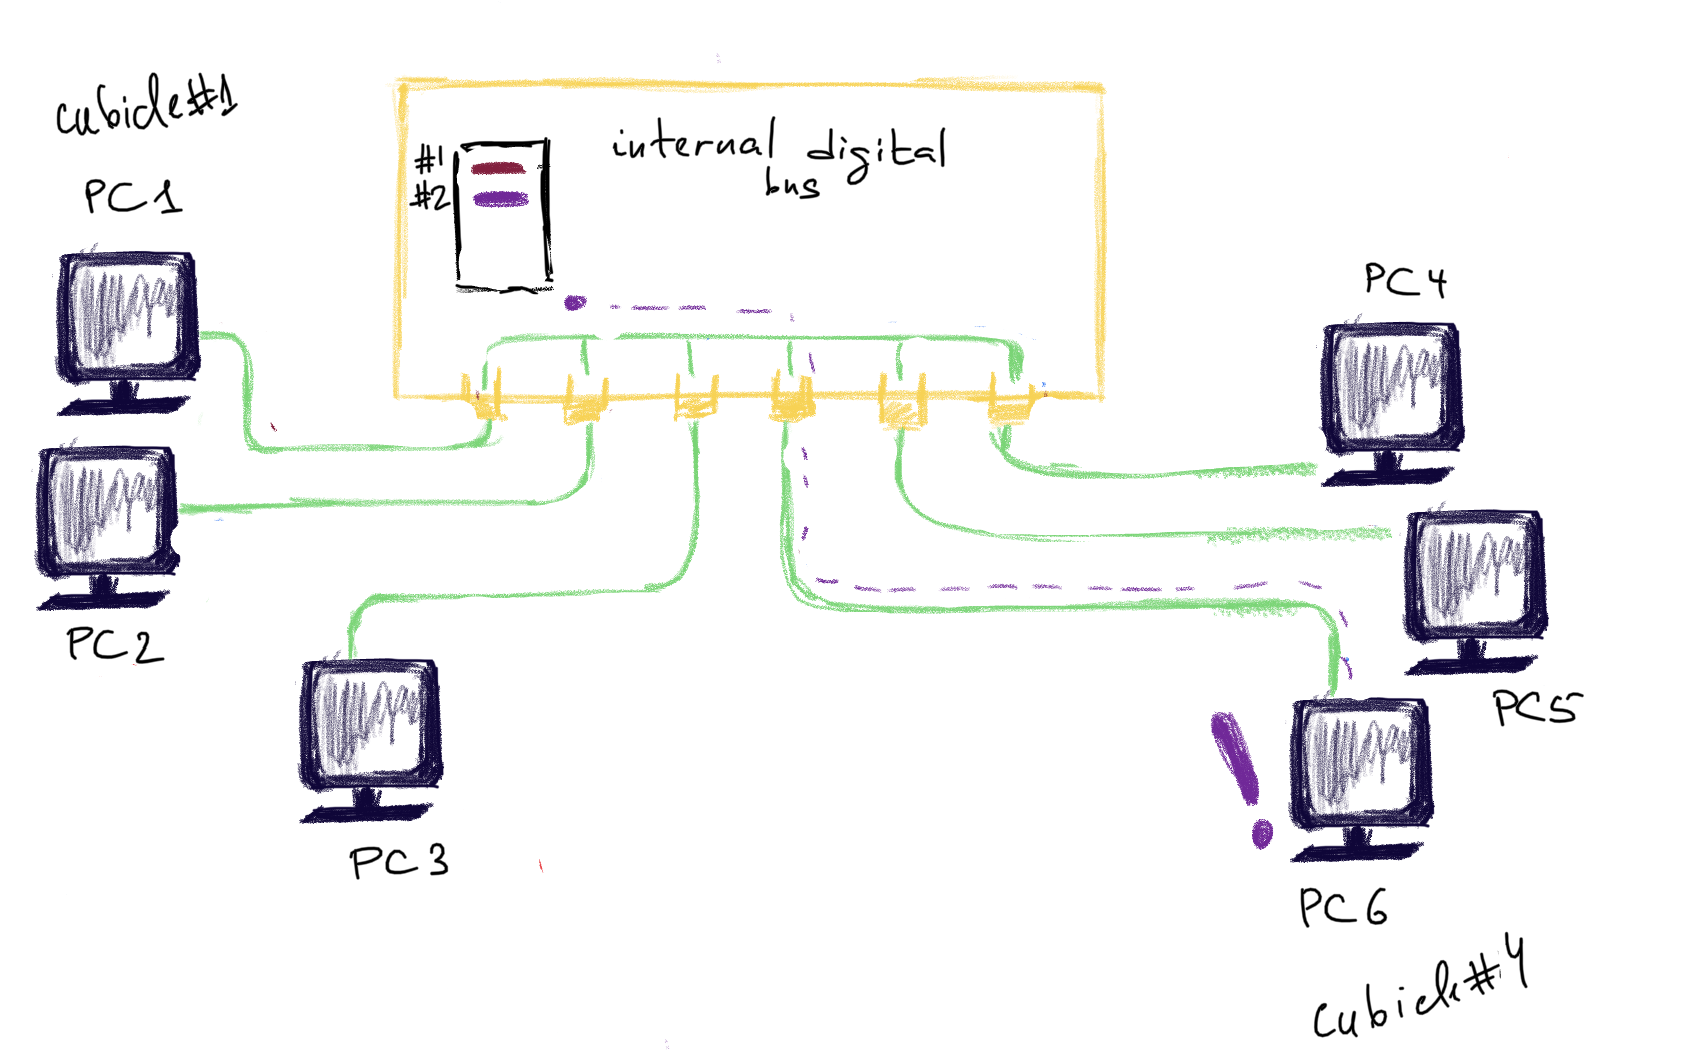 cubicle#1
PC1
#1
#2
internal digital
bus
PC4
PC2
PC5
PC3
PC6
cubicle#4